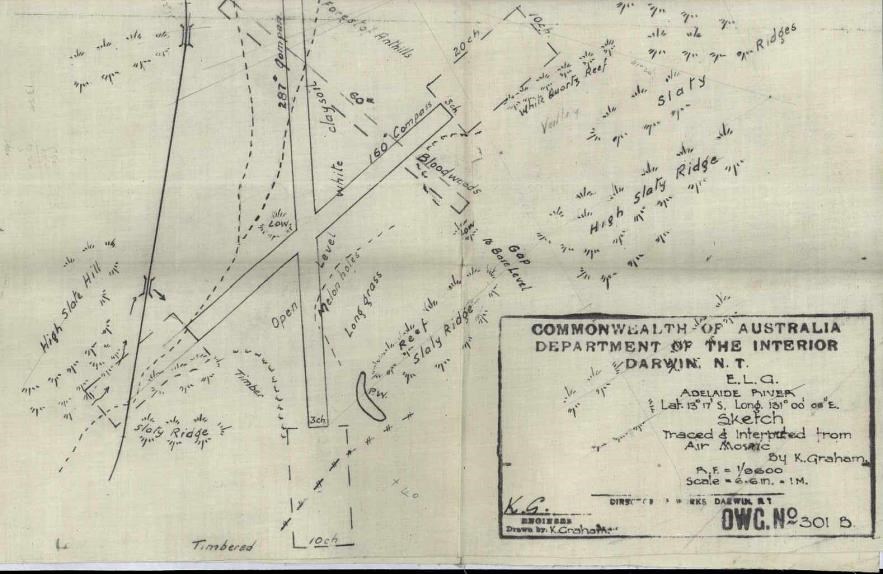 Forest of Anthills
10ch
20ch
Ridges
Slaty
287° Compass
White clay soil
60°
160° Compass
3ch
White Quartz Reef
Valley
Bloodwoods
High Slaty Ridge
Low
Low
Gap
To Base Level
Level
Open
Melonholes
Long grass
High Slate Hill
Reef
Slaty Ridge
Timber
P.W.
3ch
Slaty Ridge
+40
10ch
Timbered
COMMONWEALTH OF AUSTRALIA
DEPARTMENT OF THE INTERIOR
DARWIN, N.T.
E.L.G.
ADELAIDE RIVER
Lat. 13° 17' S, Long. 131° 00' 08" E.
Sketch
Traced & Interpreted from
Air Mosaic
By K.Graham.
R.F. = 1/9600
Scale = 6.6 in. = 1M.
DARWIN, N.T.
K.G.
ENGINEER
Drawn by: K.Graham
DWG. No 301 B.